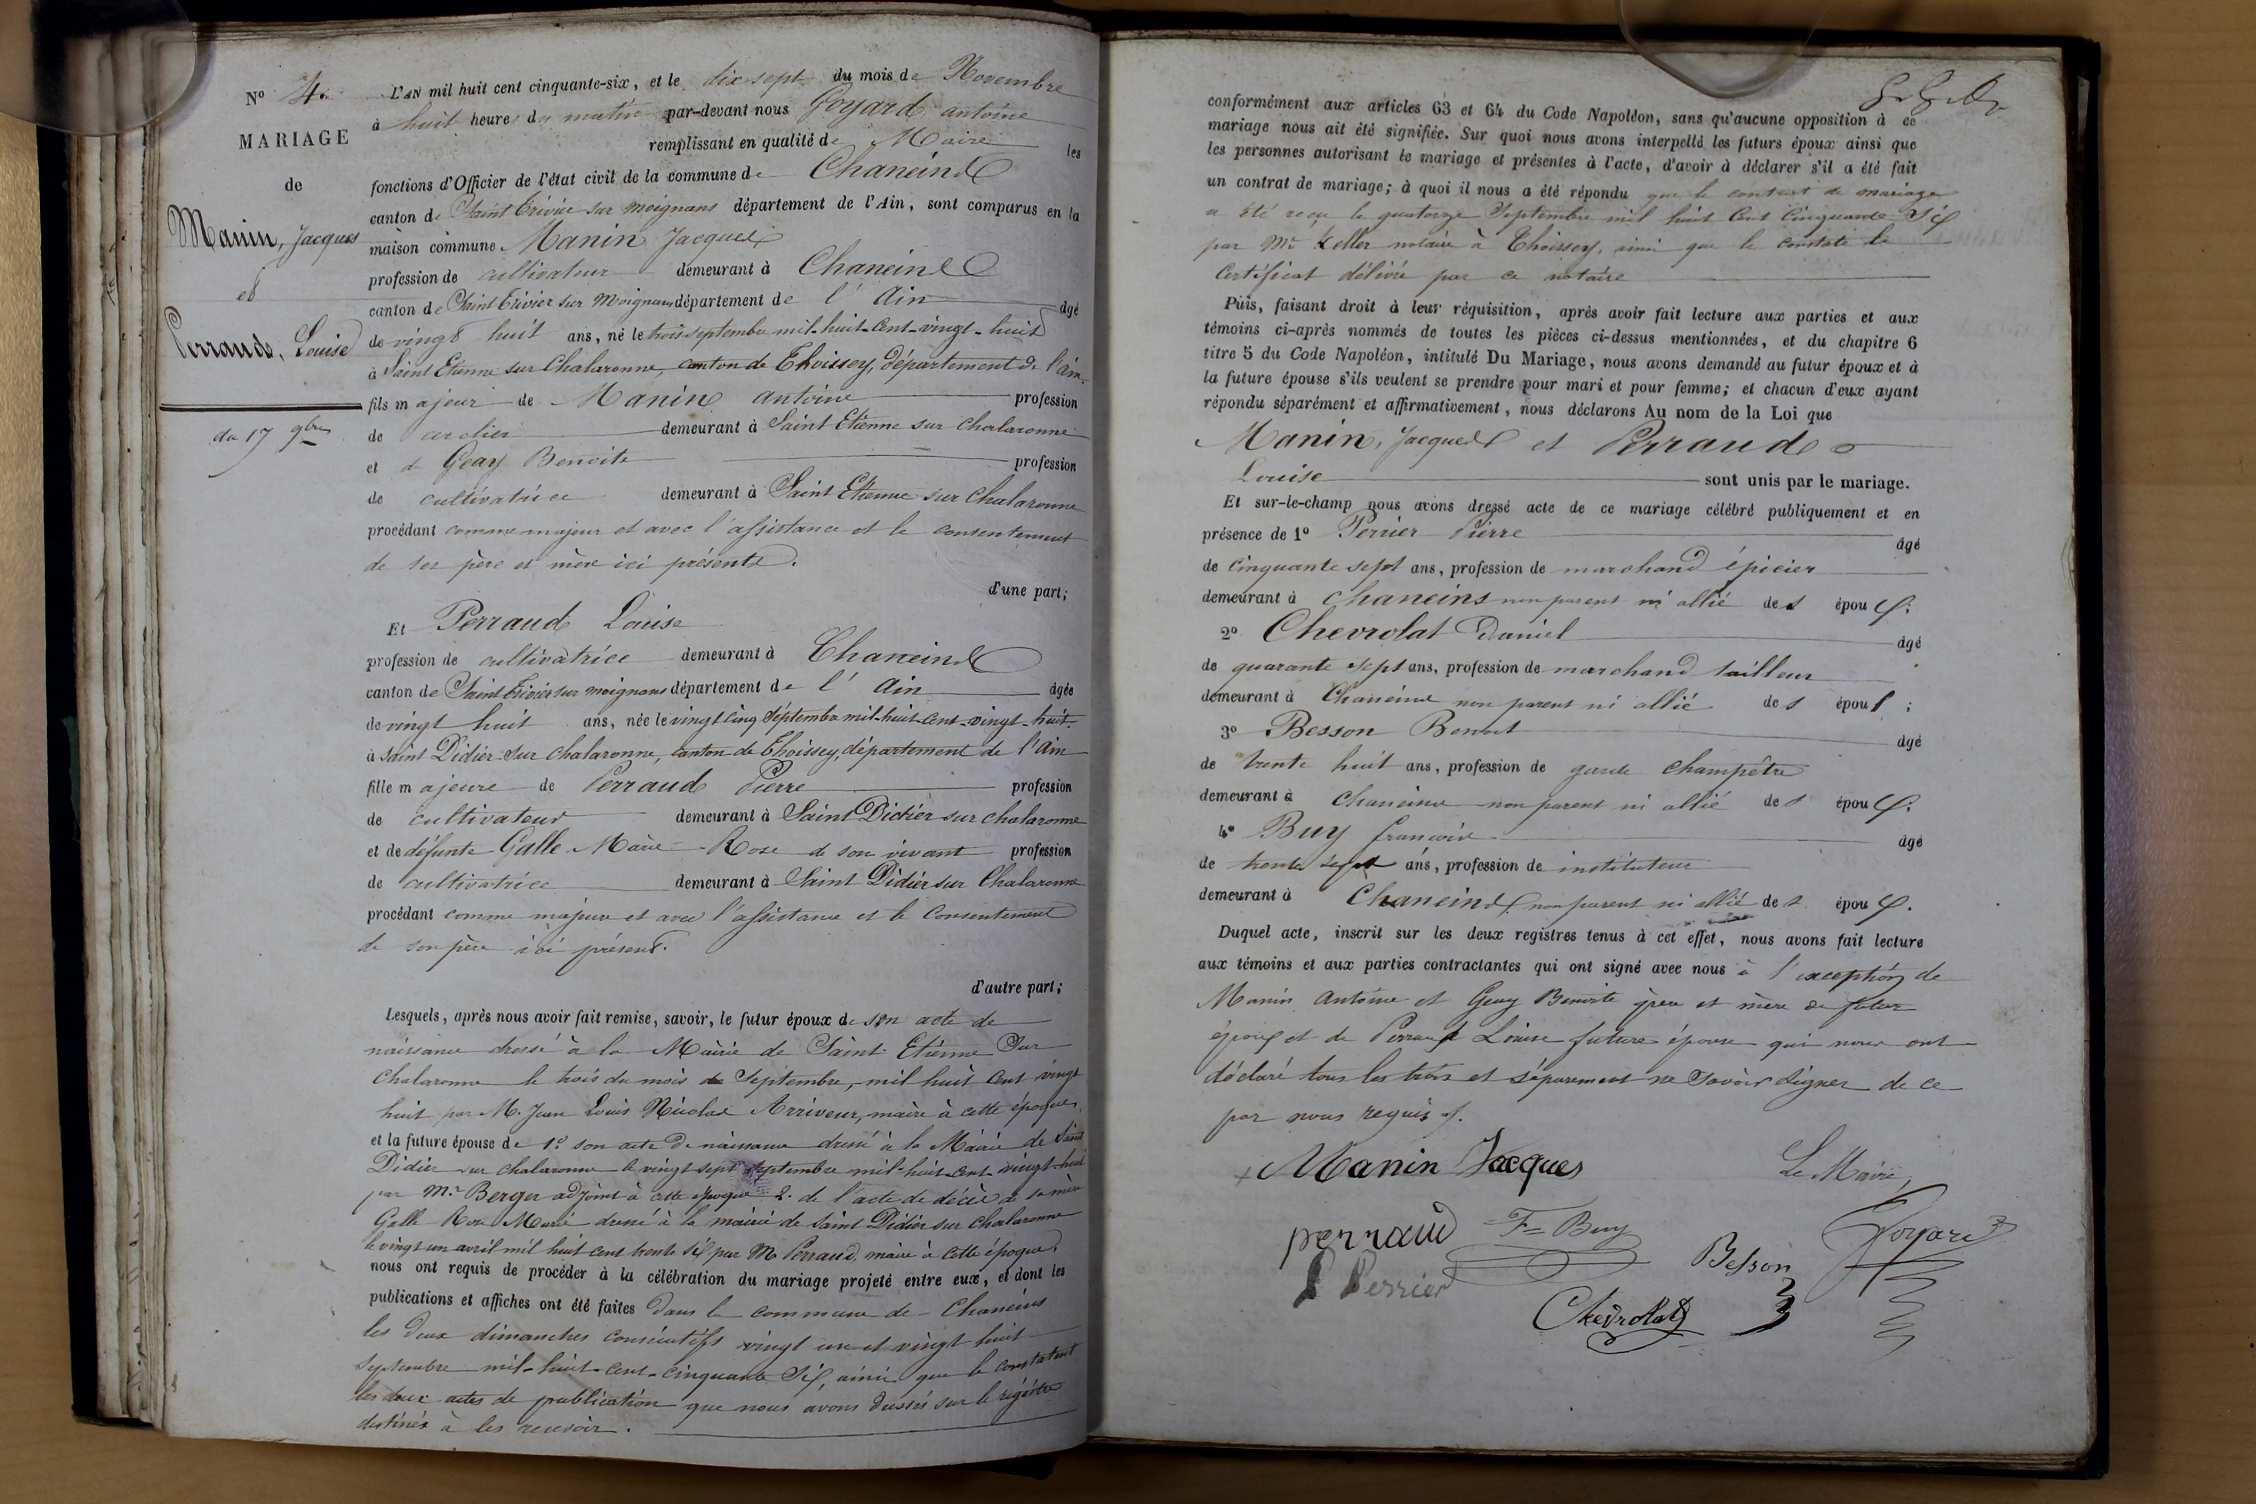 N° 4.
MARIAGE
de
Manin, Jacques
et
Perraud, Louise
du 17 9bre
L'AN mil huit cent cinquante-six, et le dix sept du mois de Novembre
à huit heures du matin par-devant nous Goyard antoine
remplissant en qualité de Maire les
fonctions d'Officier de l'état civil de la commune de Chaneins
canton de Saint Trivier sur moignans département de l'Ain, sont comparus en la
maison commune Manin Jacques
profession de cultivateur demeurant à Chaneins
canton de Saint Trivier sur Moignans département de l'Ain âgé
de vingt huit ans, né le trois septembre mil-huit-Cent-vingt-huit
à Saint Etienne sur Chalaronne, canton de Thoissey, département de l'ain.
fils majeur de Manin antoine profession
de demeurant à Saint Etienne sur Chalaronne
et de Geay Benoite profession
de cultivatrice demeurant à Saint Etienne sur Chalaronne
procédant comme majeur et avec l'assistance et le consentement
de ses père et mère ici présents.
d'une part;
Et Perraud Louise
profession de cultivatrice demeurant à Chaneins
canton de Saint Trivier sur moignans département de l'Ain âgée
de vingt huit ans, née le vingt cinq septembre mil-huit-cent-vingt-huit.
à Saint Didier sur chalaronne, canton de Thoissey, département de l'Ain
fille majeure de Perraud Pierre profession
de cultivateur demeurant à Saint Didier sur chalaronne
et de défunte Galle Marie Rose de son vivant profession
de cultivatrice demeurant à Saint Didier sur Chalaronne
procédant comme majeure et avec l'assistance et le Consentement
de son père ici présent.
d'autre part;
Lesquels, après nous avoir fait remise, savoir, le futur époux de son acte de
naissance dressé à la Mairie de Saint Etienne Sur
Chalaronne le trois du mois de Septembre, mil huit Cent vingt
huit par M. Jean Louis Nicolas Arriveur, maire à cette époque,
et la future épouse de 1° son acte de naissance dressé à la Mairie de Saint
Didier sur chalaronne le vingt sept septembre mil-huit-Cent-vingt-huit
par Mr Berger adjoint à cette époque 2° de l'acte de décès de sa mère
Galle Rose Marie dressé à la mairie de Saint Didier sur chalaronne
le vingt un avril mil huit cent trente six par M Perraud maire à cette époque,
nous ont requis de procéder à la célébration du mariage projeté entre eux, et dont les
publications et affiches ont été faites dans la commune de Chaneins
les deux dimanches consécutifs vingt un et vingt huit
Septembre mil-huit-cent-cinquante six, ainsi que le constatent
les deux actes de publication que nous avons dressés sur le registre
destinés à les recevoir.
conformément aux articles 63 et 64 du Code Napoléon, sans qu'aucune opposition à ce
mariage nous ait été signifiée. Sur quoi nous avons interpellé les futurs époux ainsi que
les personnes autorisant le mariage et présentes à l'acte, d'avoir à déclarer s'il a été fait
un contrat de mariage; à quoi il nous a été répondu que le contrat de mariage
a été reçu le quatorze Septembre mil huit Cent Cinquante Six
par Mr Keller notaire à Thoissey, ainsi que le constate le
Certificat délivré par ce notaire
Puis, faisant droit à leur réquisition, après avoir fait lecture aux parties et aux
témoins ci-après nommés de toutes les pièces ci-dessus mentionnées, et du chapitre 6
titre 5 du Code Napoléon, intitulé Du Mariage, nous avons demandé au futur époux et à
la future épouse s'ils veulent se prendre pour mari et pour femme; et chacun d'eux ayant
répondu séparément et affirmativement, nous déclarons Au nom de la Loi que
Manin, Jacques et Perraud
Louise sont unis par le mariage.
Et sur-le-champ nous avons dressé acte de ce mariage célébré publiquement et en
présence de 1° Perrier Pierre âgé
de Cinquante sept ans, profession de marchand épicier
demeurant à Chaneins non parent ni allié des époux;
2° Chevrolat Daniel âgé
de quarante sept ans, profession de marchand tailleur
demeurant à Chaneins non parent ni allié des époux;
3° Besson Benoit âgé
de trente huit ans, profession de garde champêtre
demeurant à Chaneins non parent ni allié des époux;
4° Buy françois âgé
de trente sept ans, profession de instituteur
demeurant à Chaneins non parent ni allié des époux.
Duquel acte, inscrit sur les deux registres tenus à cet effet, nous avons fait lecture
aux témoins et aux parties contractantes qui ont signé avec nous à l'exception de
Manin Antoine et Geay Benoite père et mère du futur
époux et de Perraud Louise future épouse qui nous ont
déclaré tous les trois et séparement ne savoir signer de ce
par nous requis.
Manin Jacques
Le Maire,
perraud
F= Buy
Goyard
P Perrier
Besson
Chevrolat